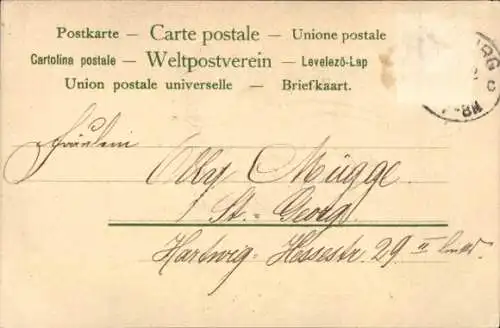 Postkarte — Carte postale — Unione postale
Cartolina postale — Weltpostverein — Levelező-Lap
Union postale universelle — Briefkaart.
Fräulein
Olly Mügge
St. Georg
Hartwig-Hessestr. 29 II links.